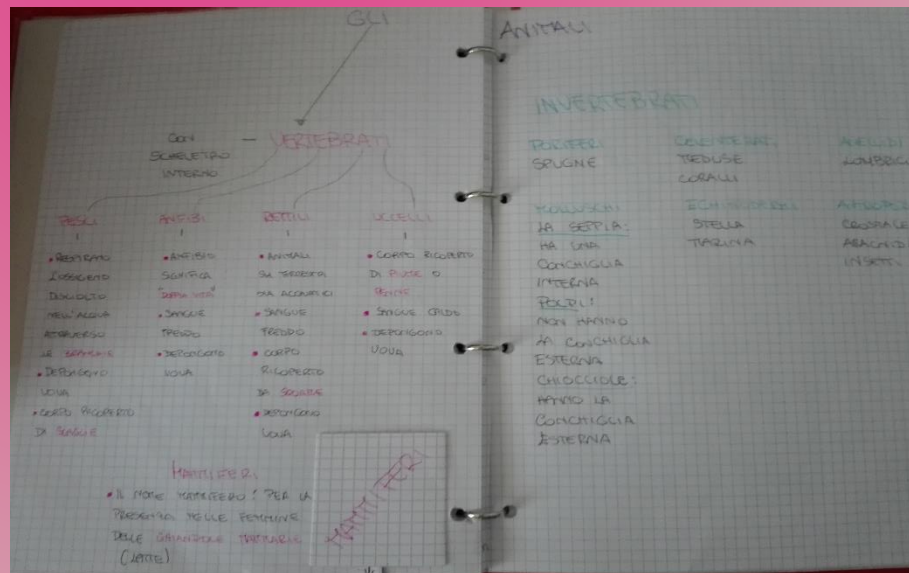 GLI ANIMALI
CON
SCHELETRO
INTERNO
- VERTEBRATI
PESCI
• RESPIRANO
L'OSSIGENO
DISCIOLTO
NELL'ACQUA
ATTRAVERSO
LE BRANCHIE
• DEPONGONO
UOVA
• CORPO RICOPERTO
DI SCAGLIE
ANFIBI
• ANFIBIO
SIGNIFICA
"DOPPIA VITA"
• SANGUE
FREDDO
• DEPONGONO
UOVA
RETTILI
• ANIMALI
SIA TERRESTRI
SIA ACQUATICI
• SANGUE
FREDDO
• CORPO
RICOPERTO
DA SQUAME
• DEPONGONO
UOVA
UCCELLI
• CORPO RICOPERTO
DI PIUME O
PENNE
• SANGUE CALDO
• DEPONGONO
UOVA
MAMMIFERI
• IL NOME MAMMIFERO: PER LA
PRESENZA NELLE FEMMINE
DELLE GHIANDOLE MAMMARIE
(LATTE)
MAMMIFERI
INVERTEBRATI
PORIFERI
SPUGNE
CELENTERATI
MEDUSE
CORALLI
ANELLIDI
LOMBRICI
MOLLUSCHI
LA SEPPIA:
HA UNA
CONCHIGLIA
INTERNA
POLPI:
NON HANNO
LA CONCHIGLIA
ESTERNA
CHIOCCIOLE:
HANNO LA
CONCHIGLIA
ESTERNA
ECHINODERMI
STELLA
MARINA
INSETTI